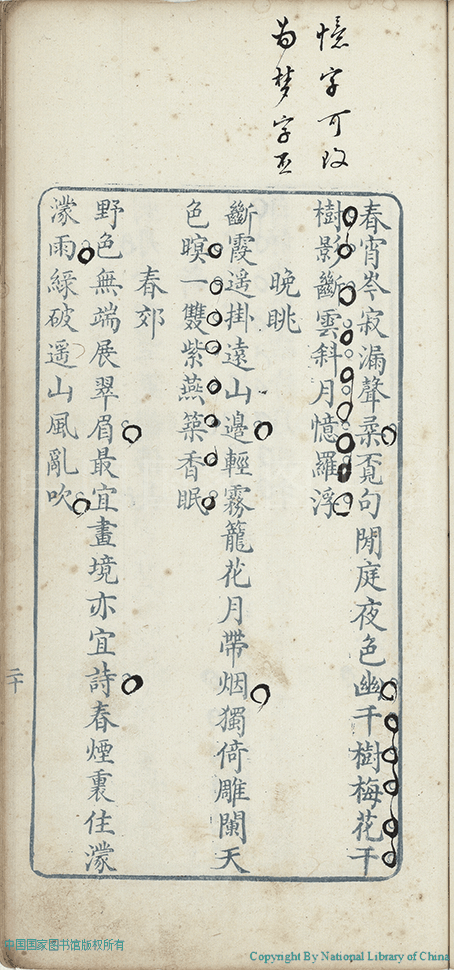 憶字可改
為梦字否
春宵岑寂漏聲柔覔句閒庭夜色幽千樹梅花千
樹影斷雲斜月憶羅浮
晩眺
斷霞遥掛遠山邉輕霧籠花月帶烟獨倚雕闌天
色暝一雙紫燕築香眠
春郊
野色無端展翠眉最宜畫境亦宜詩春煙裏住濛
濛雨緑破遥山風亂吹
二十
中国国家图书馆版权所有
Copyright By National Library of China